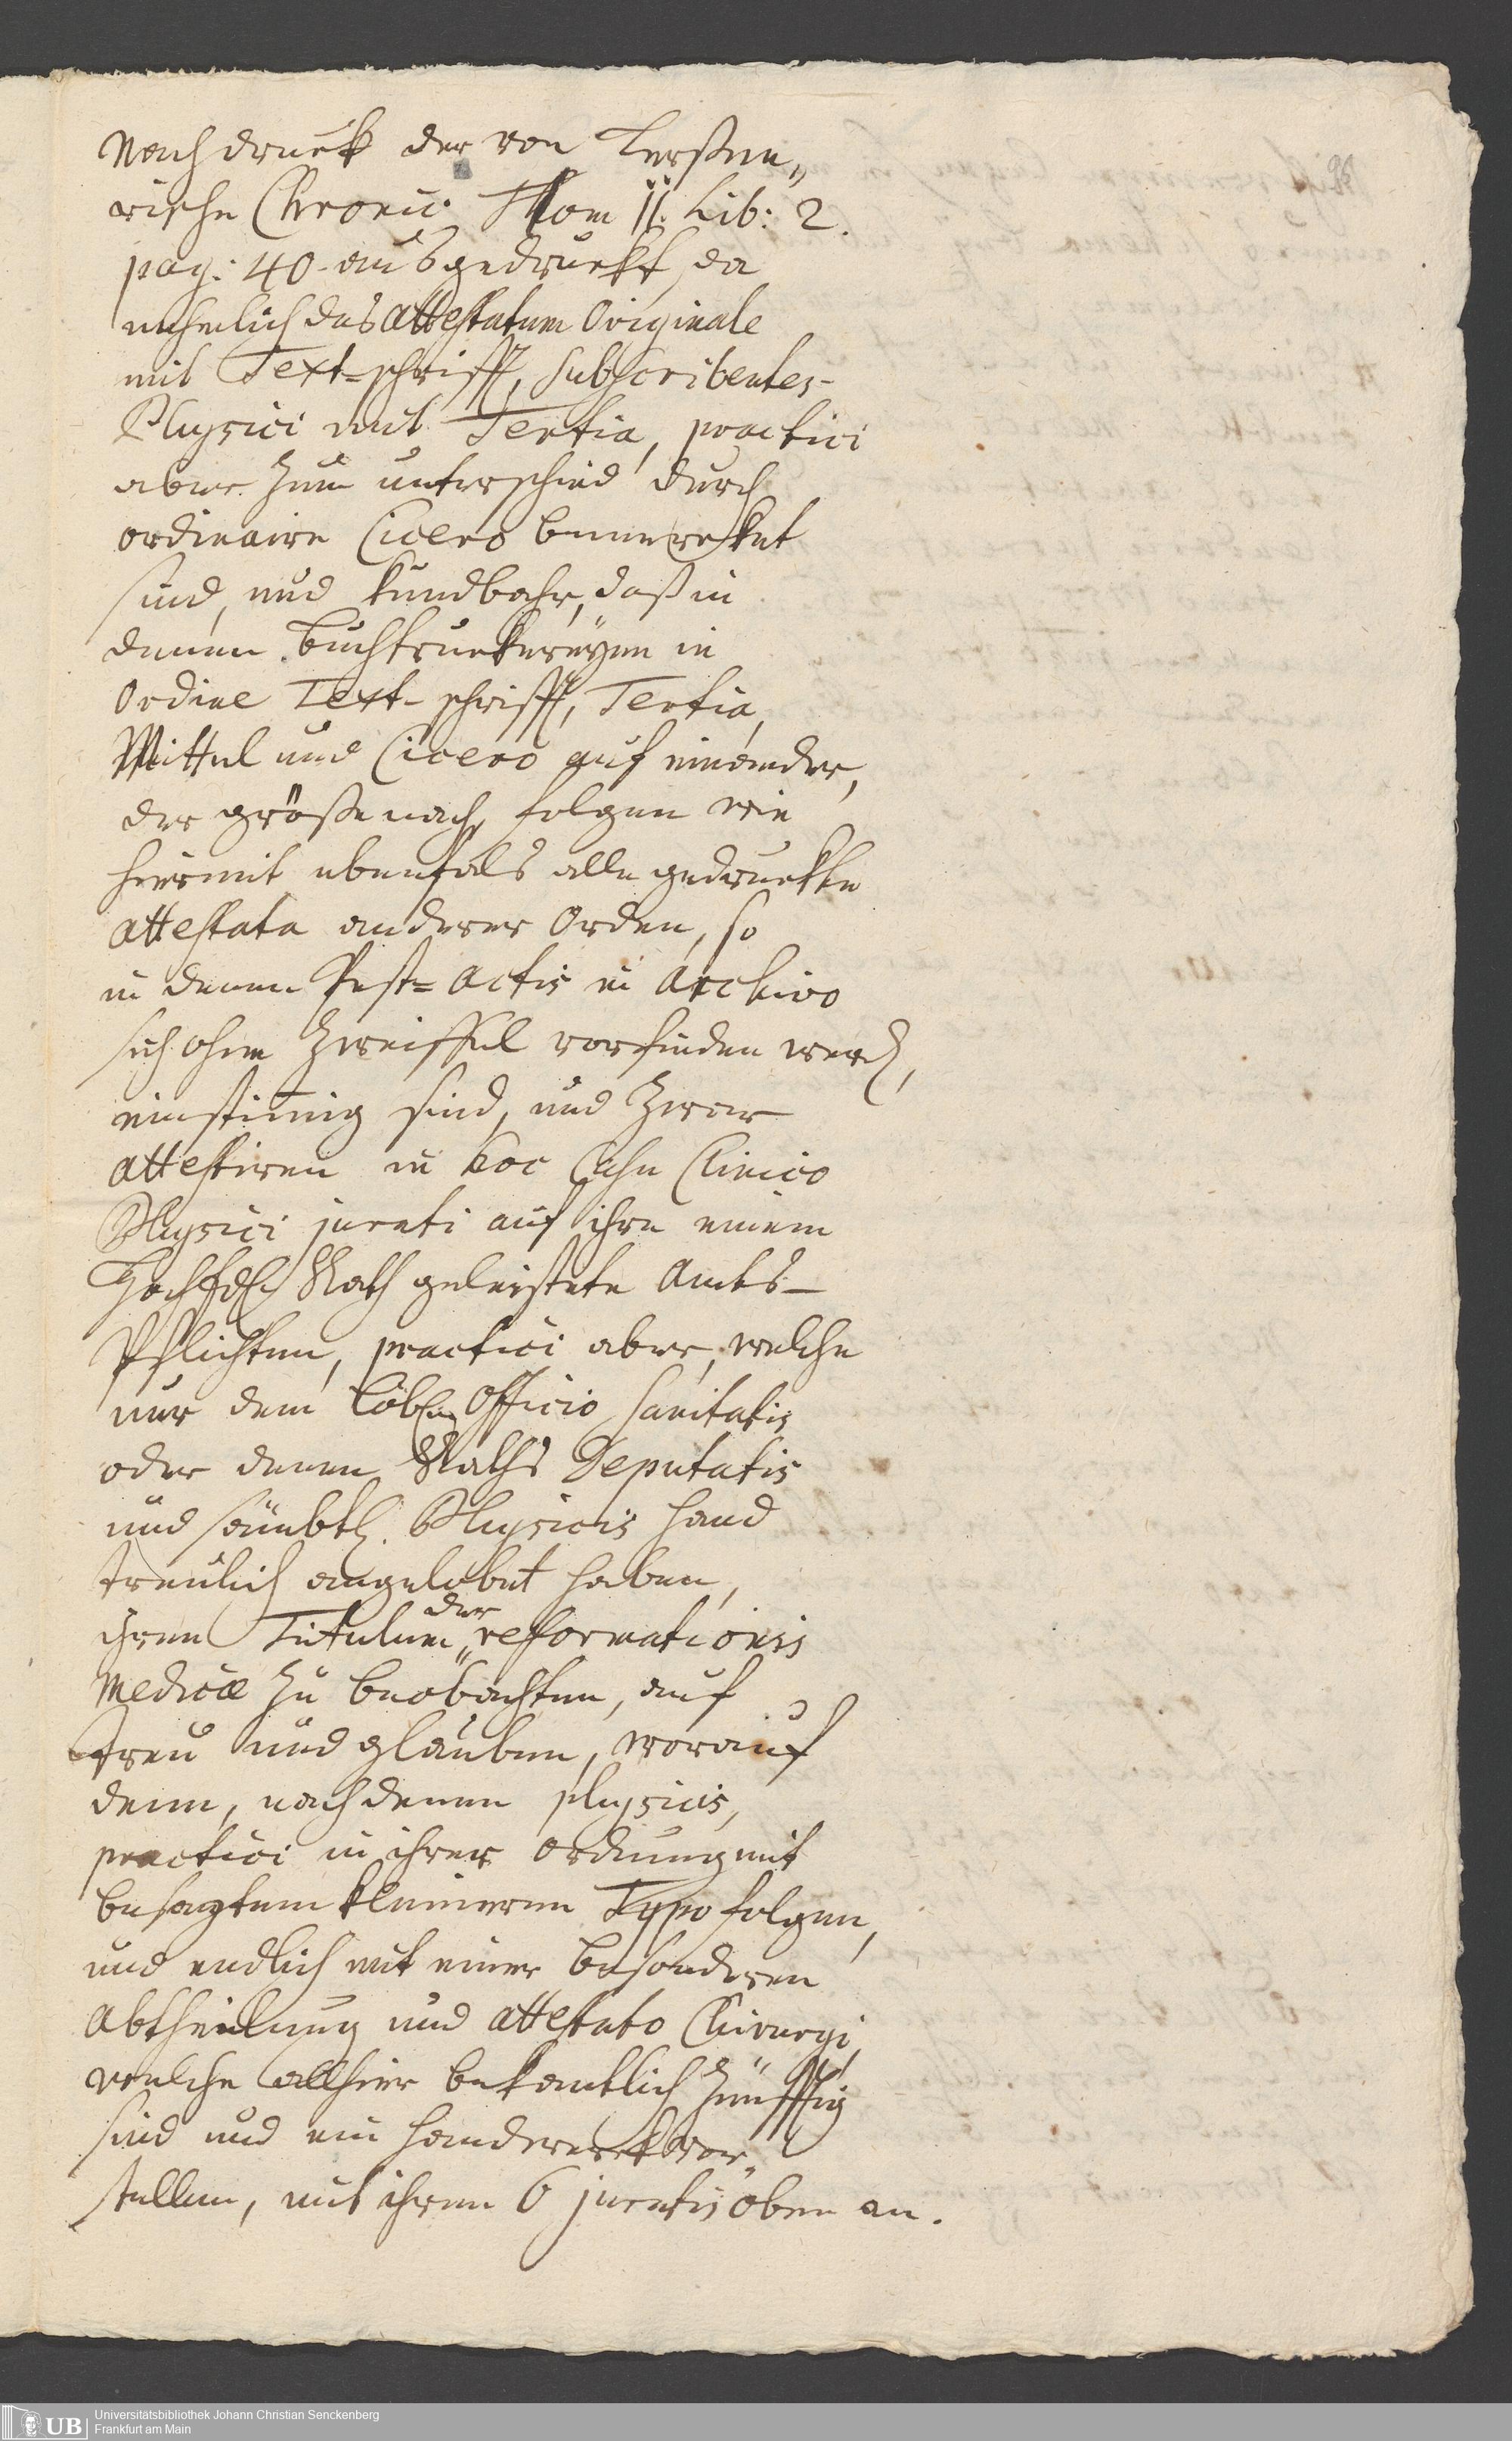 Nachdruck der von Lerßne„
rische Chronic. Thom II. Lib: 2.
pag: 40 ausgedruckt, da
nehmlich das Attestatum Originale
mit Text=schrifft, subscribentes-
Physici mit Tertia, practici
aber zum unterschied durch
ordinaire Cicero bemercket
sind, und kundbahr, daß in
denen Buchtruckereyen in
Ordine Text-schrifft, Tertia,
Mittel und Cicero auf einander,
der größe nach, folgen wie
hiermit ebenfals alle gedruckte
attestata anderer Orden, so
in denen Pest=Actis in Archivo
sich ohne Zweiffel vorfinden werd,
einstimig sind, und Zwar
attestiren in hoc Casu Clinico
Physici jurati auf ihre einem
Rath geleistete Amts-
Pflichten, practici aber, welche
nur dem Löbl. Officio Sanitatis
oder denen Raths Deputatis
und sämbtl. Physicis hand
treulich angelobet haben,
der
ihren Titulum „ reformationis
Medicæ zu beobachten, auf
Treu und glauben, worauf
denn, nach denen physicis,
practici in ihrer ordnung mit
besagtem kleineren Typo folgen,
und endlich mit einer besonderen
Abtheilung und attestato Chirurgi,
welche allhier bekantlich Zünfftig
sind und ein handwerck vor„
stellen, mit ihren 6 juratis oben an.
98
UB
Universitätsbibliothek Johann Christian Senckenberg
Frankfurt am Main